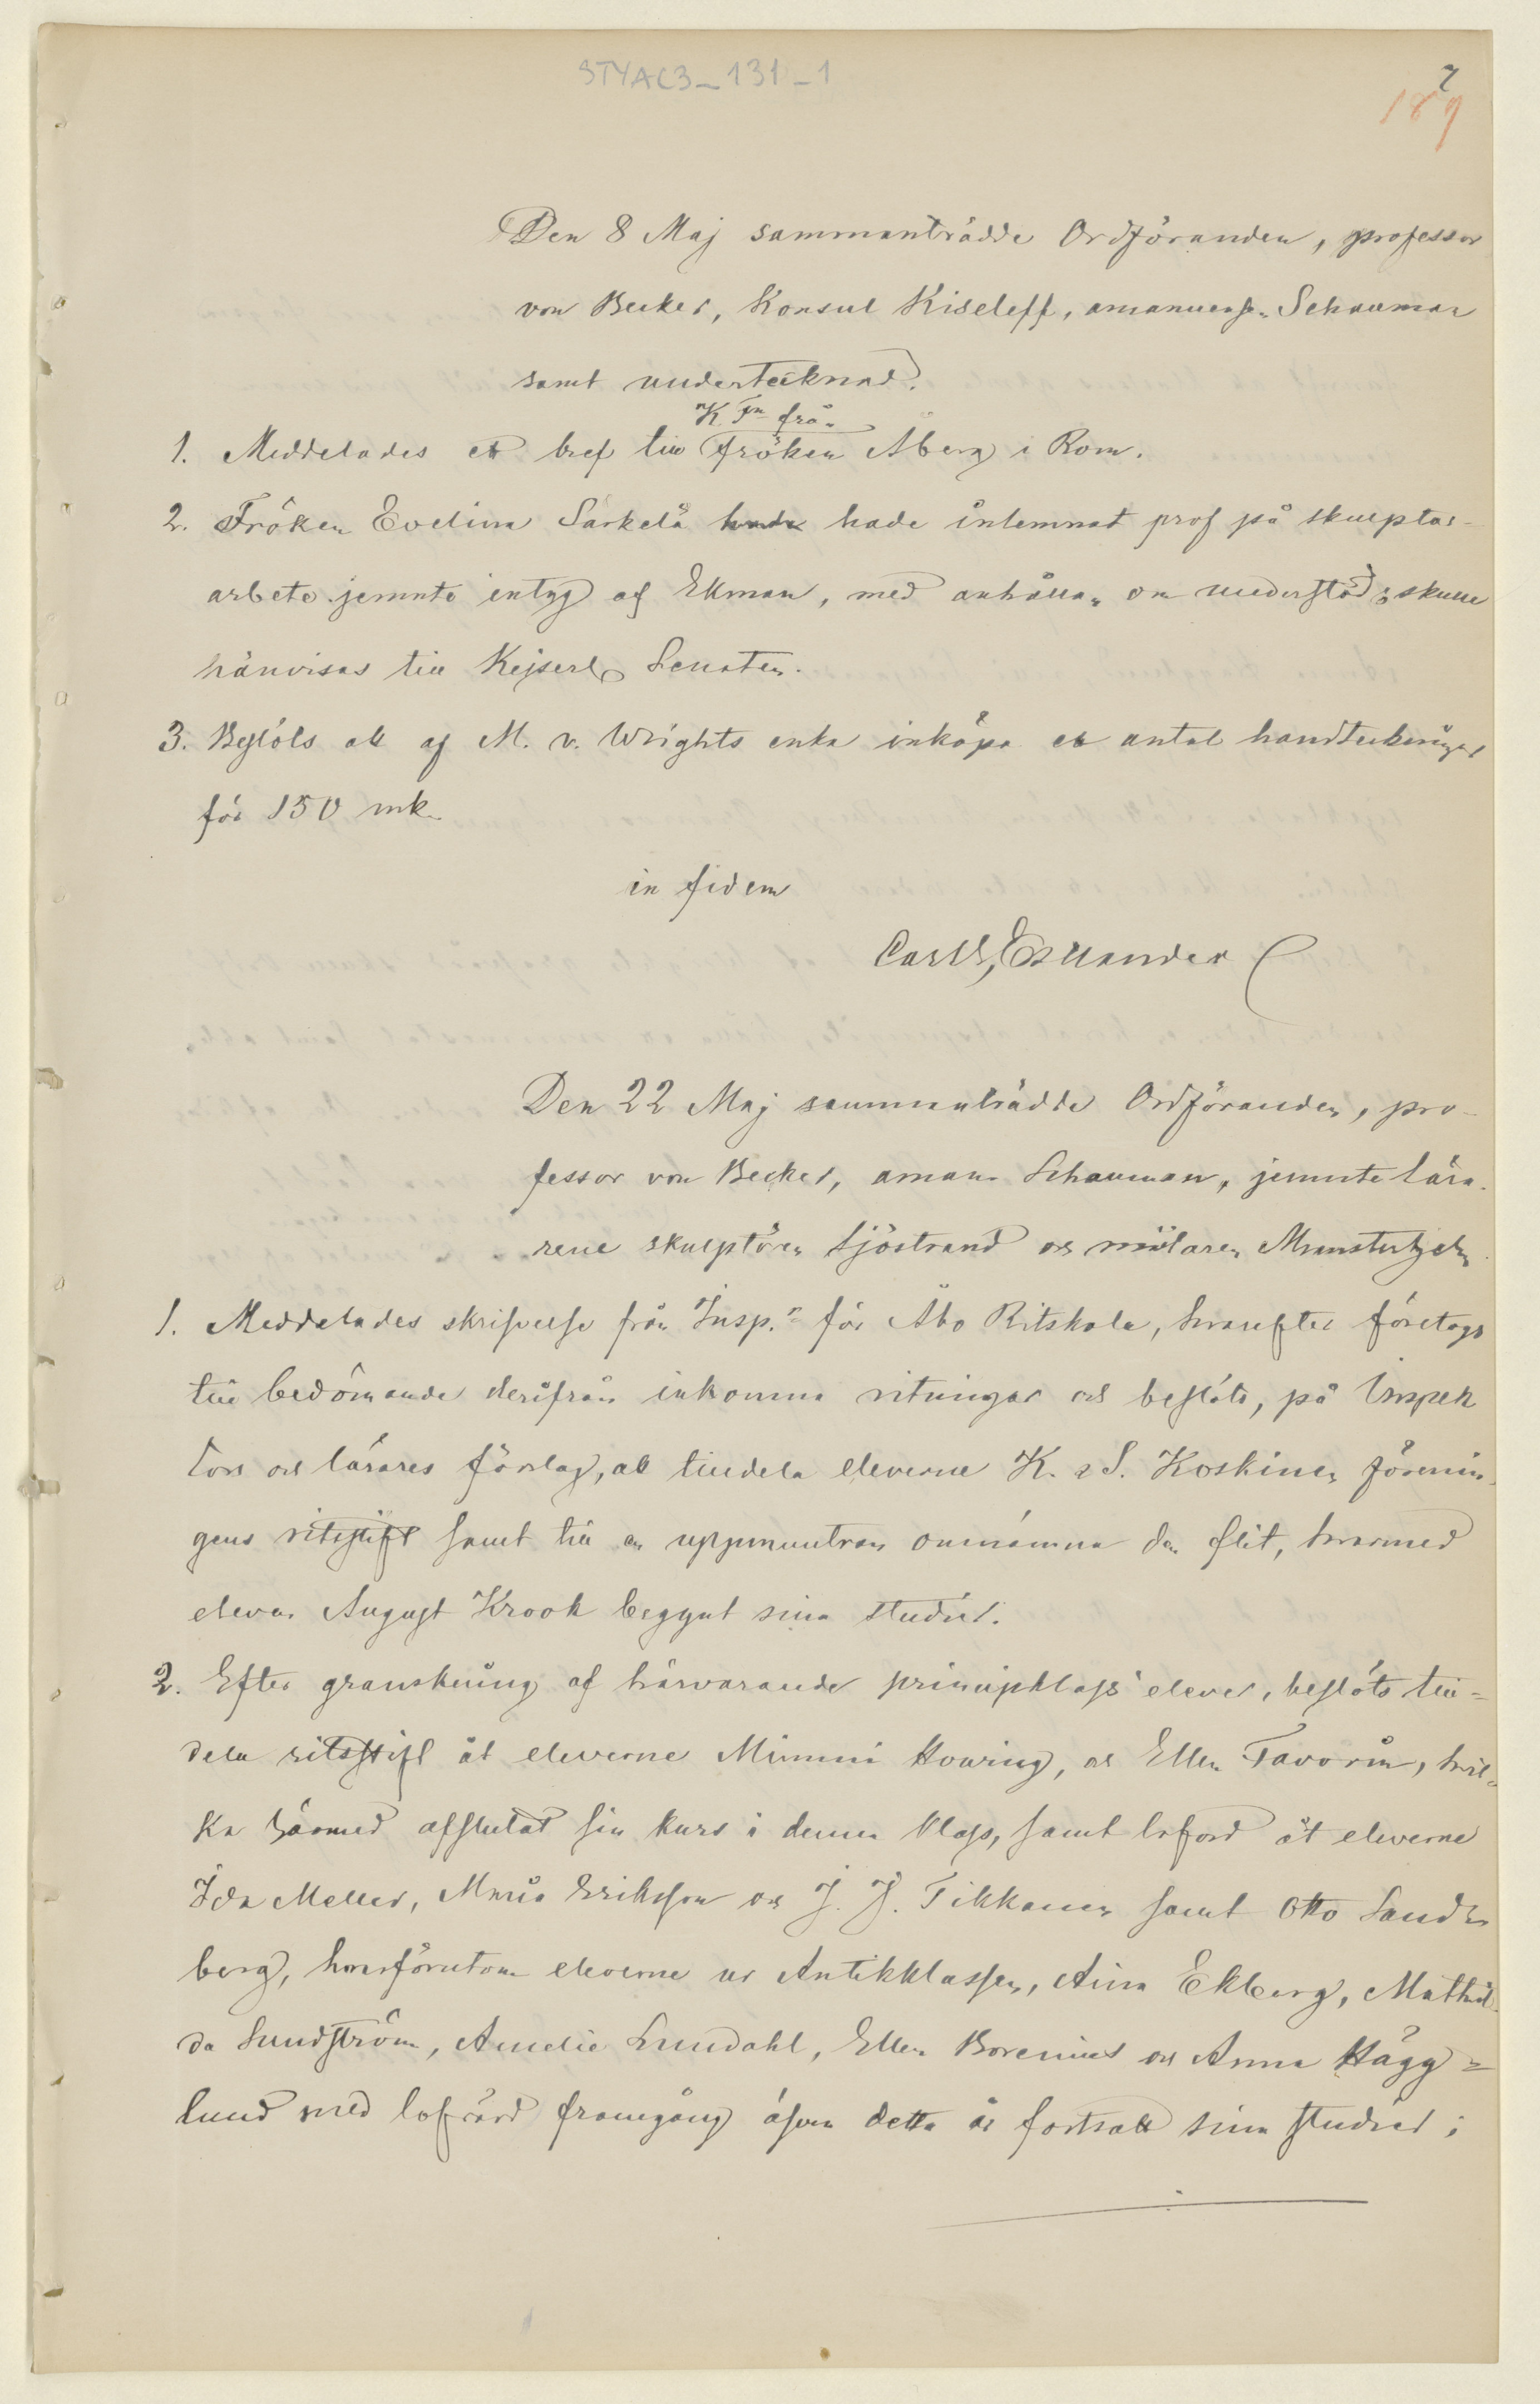 STYAC3_131_1
7
189
Den 8 Maj sammanträdde Ordföranden, professor
von Becker, Konsul Kiseleff, amanuensen Schauman
samt undertecknad.
K. Fn från
1. Meddelades ett bref till fröken Åberg i Rom.
2. Fröken Evelina Särkelä hade hade inlemnat prof på skulptur-
arbete jemnte intyg af Ekman, med anhållan om understöd; skulle
hänvisas till Kejserl. Senaten.
3. Beslöts att af M. v. Wrights enka inköpa ett antal handteckningar
för 150 mk.
in fidem
Carl G. Estlander
Den 22 Maj sammanträdde Ordföranden, pro-
fessor von Becker, aman. Schauman, jemnte lära-
rene skulptören Sjöstrand och målaren Munsterhjelm
1. Meddelades skrifvelse från Insp.n för Åbo Ritskola, hvarefter företogs
till bedömande derifrån inkomna ritningar och beslöts, på Inspek
tors och lärares förslag, att tilldela eleverne K. & S. Koskinen förenin-
gens ritstift samt till en uppmuntran omnämna den flit, hvarmed
eleven August Krook begynt sina studier.
2. Efter granskning af härvarande principklass' elever, beslöts till=
dela ritstift åt eleverne Mimmi Howing, och Ellen Favorin, hvil=
ka härmed afslutat sin kurs i denna klass, samt loford åt eleverne
Ida Meller, Maria Eriksson och J. J. Tikkanen samt Otto Sand
berg, hvarförutom eleverne ur Antikklassen, Aina Ekberg, Mathil-
da Sundström, Amelie Lundahl, Ellen Borenius och Anna Hägg=
lund med lofvärd framgång äfven detta år fortsatt sina studier;